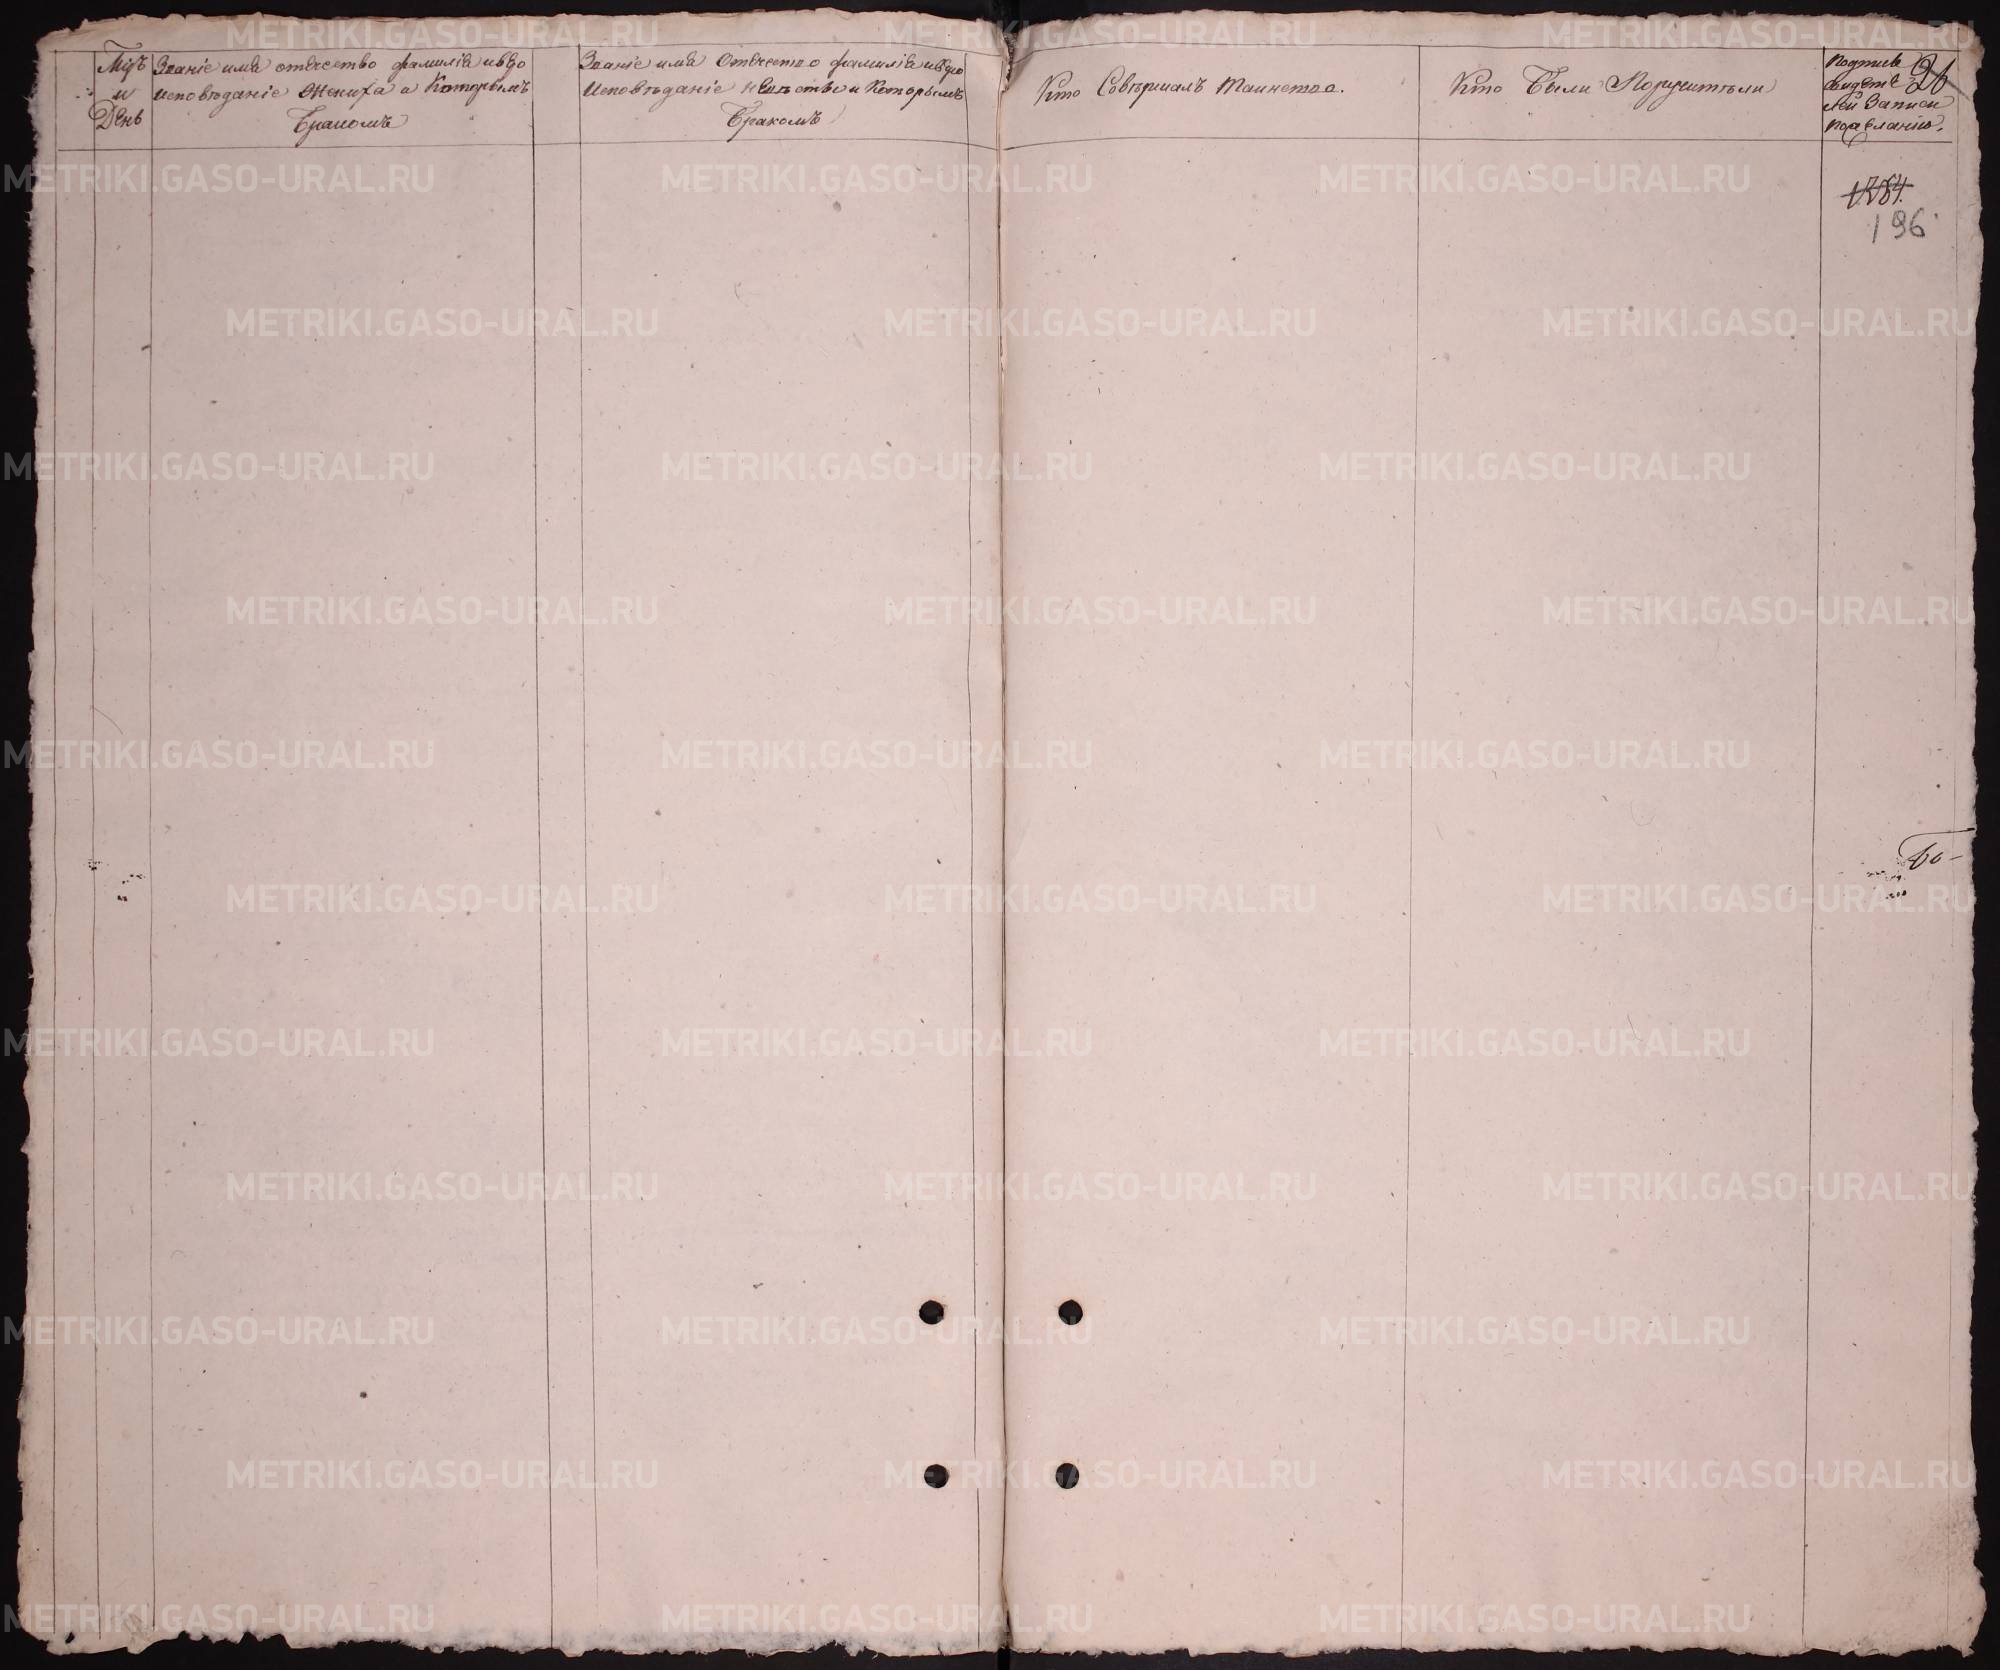 Мцъ
и
День
Званіе имя отчество фамилія и вѣро
исповѣданіе жениха и Которымъ
Бракомъ
Званіе имя Отчество фамилія и вѣро
Исповѣданіе невѣсты и Которымъ
Бракомъ
Кто Совершалъ Таинство.
Кто Были Поручители
Подпись
свидѣте
лей Записи
по желанію.
26
1784.
196
METRIKI.GASO-URAL.RU